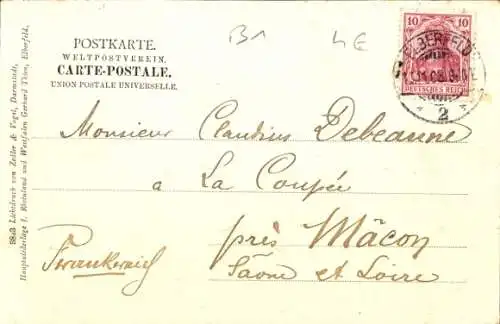 POSTKARTE.
WELTPOSTVEREIN.
CARTE-POSTALE.
UNION POSTALE UNIVERSELLE.
B1
4E
10 10
DEUTSCHES REICH
ELBERFELD
2
Monsieur Claudius Debeaune
a La Coupée
près Mâcon
Saône et Loire
Frankreich
Lichtdruck von Zeller & Vogel, Darmstadt,
Hauptniederlage f. Rheinland und Westfalen Gerhard Thien, Elberfeld.